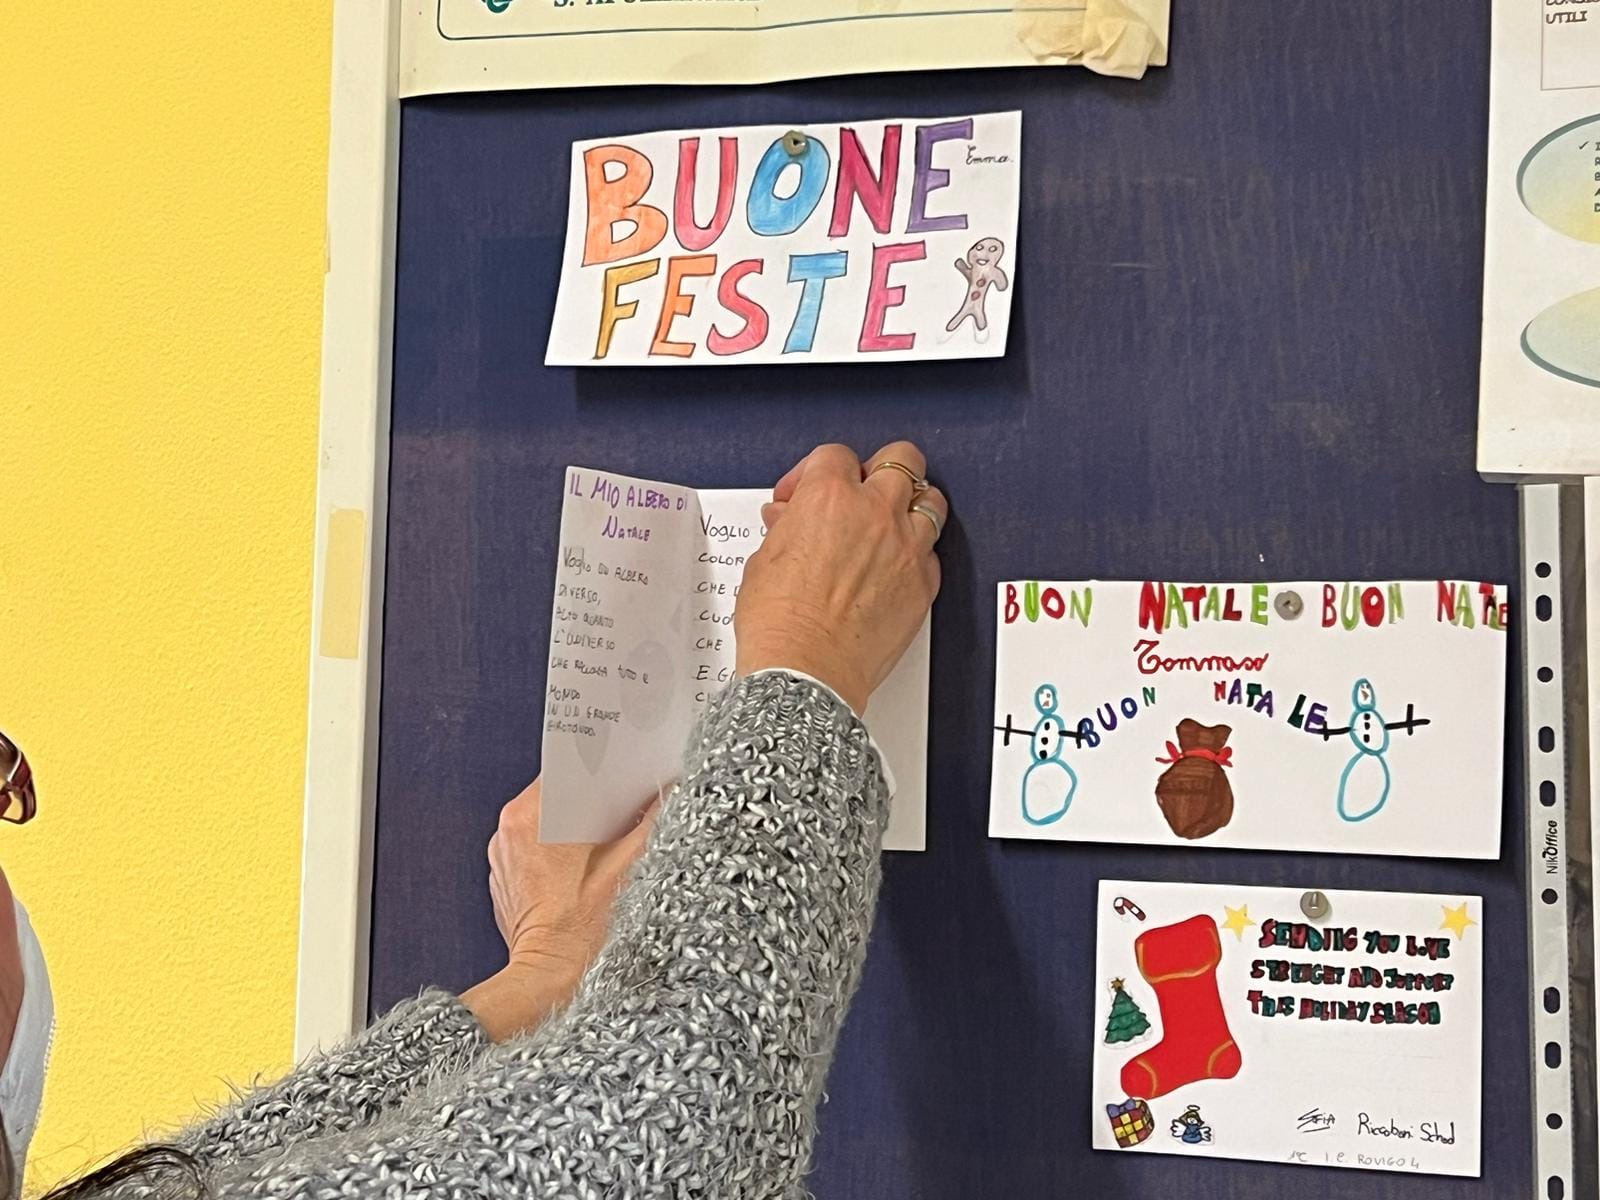 BUONE
Emma.
FESTE
IL MIO ALBERO DI
NATALE
Voglio UN ALBERO
DIVERSO,
ALTO QUANTO
L'UNIVERSO
CHE RACCOLGA TUTTO IL
MONDO
IN UN GRANDE
GIROTONDO.
VOGLIO
COLOR
CHE
CUO
CHE
E
BUON NATALE BUON NATALE
Tommaso
BUON NATALE
SENDING YOU LOVE
STRENGHT AND SUPPORT
THIS HOLIDAY SEASON
Riccoboni School
1°C I.C. ROVIGO 4
UTILI
NikOffice